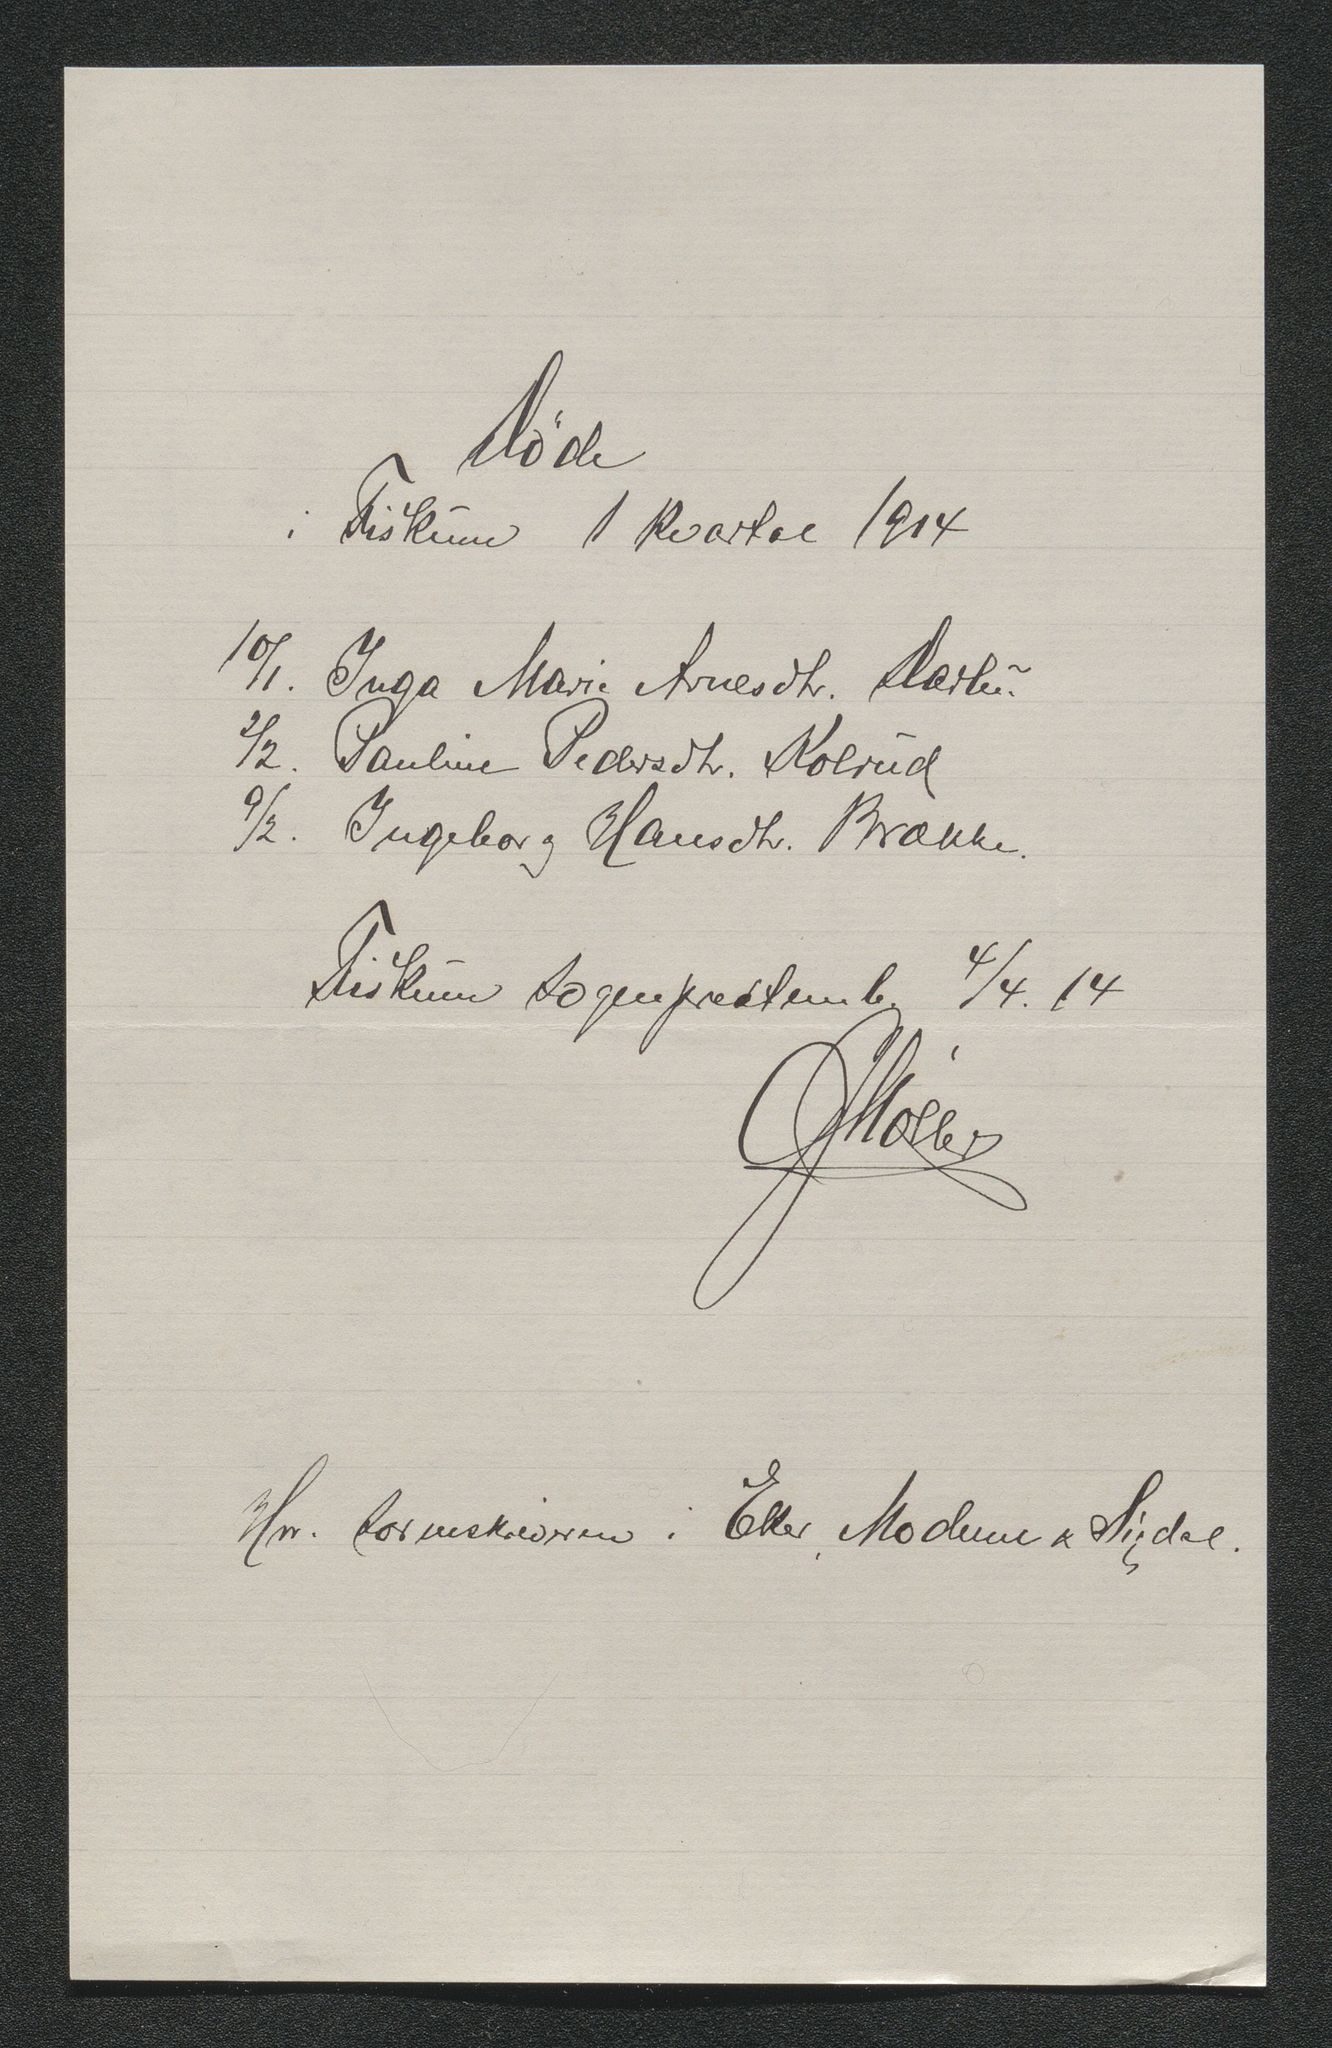 Döde
i Fiskum 1 kvartal 1914
10/1. Inga Marie Arnesdtr. Darbu.
2/2. Pauline Pedersdtr. Kolrud
9/2. Ingeborg Hansdtr. Brække.
Fiskum sogneprestemb. 4/4. 14
Möller
Hr. sorenskriveren i Eker, Modum & Sigdal.